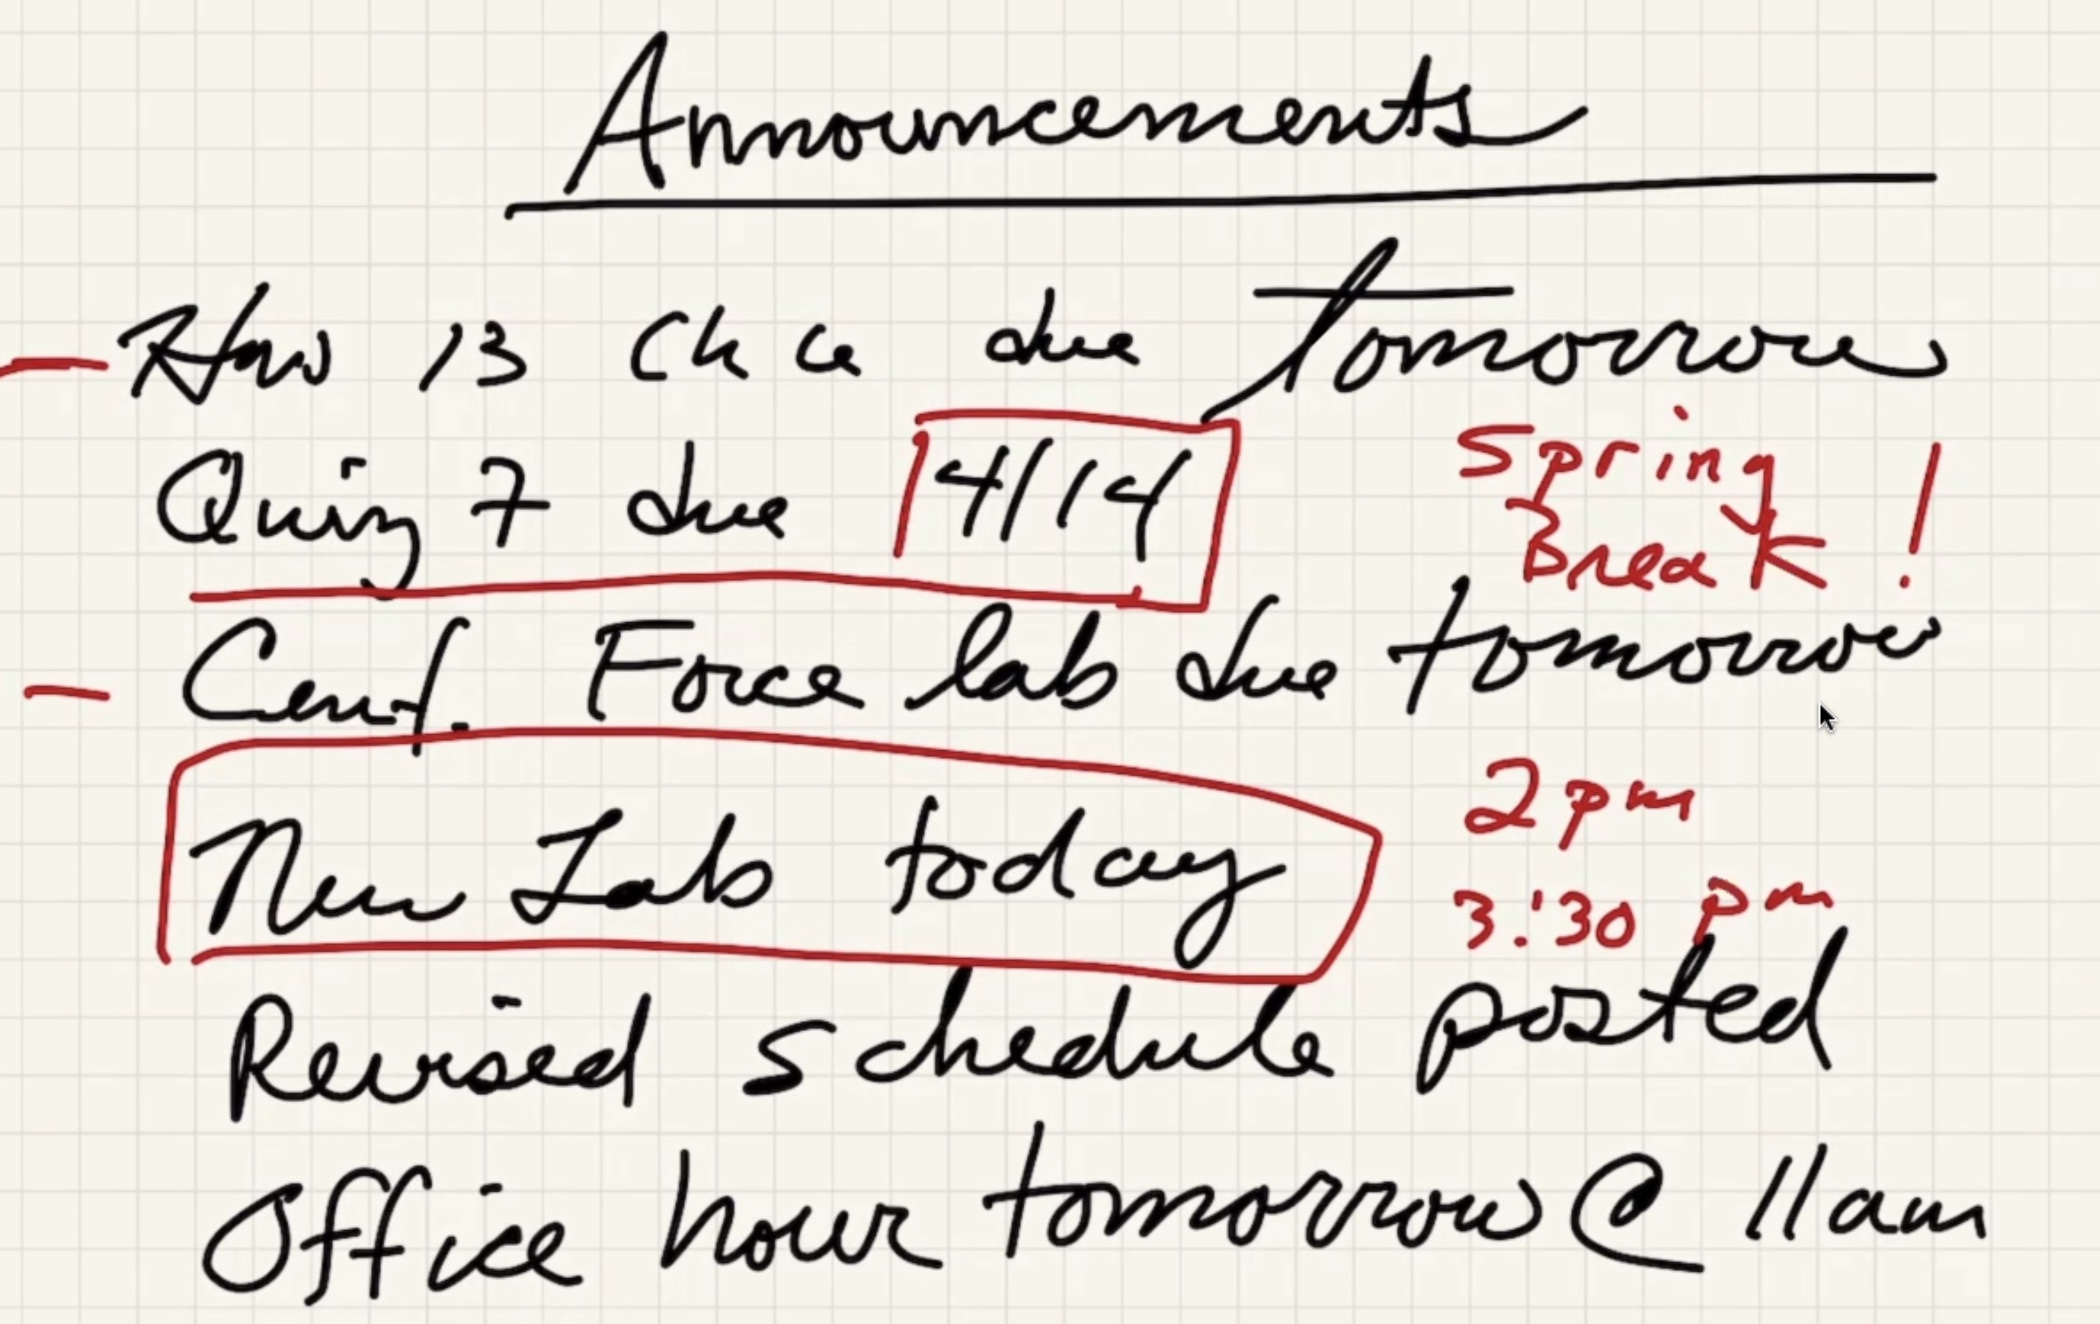 Announcements
HW 13 Ch 6 due tomorrow
Quiz 7 due 4/14
Spring
Break!
Cent. Force lab due tomorrow
2 pm
New Lab today
3:30 pm
Revised schedule posted
Office hour tomorrow @ 11am